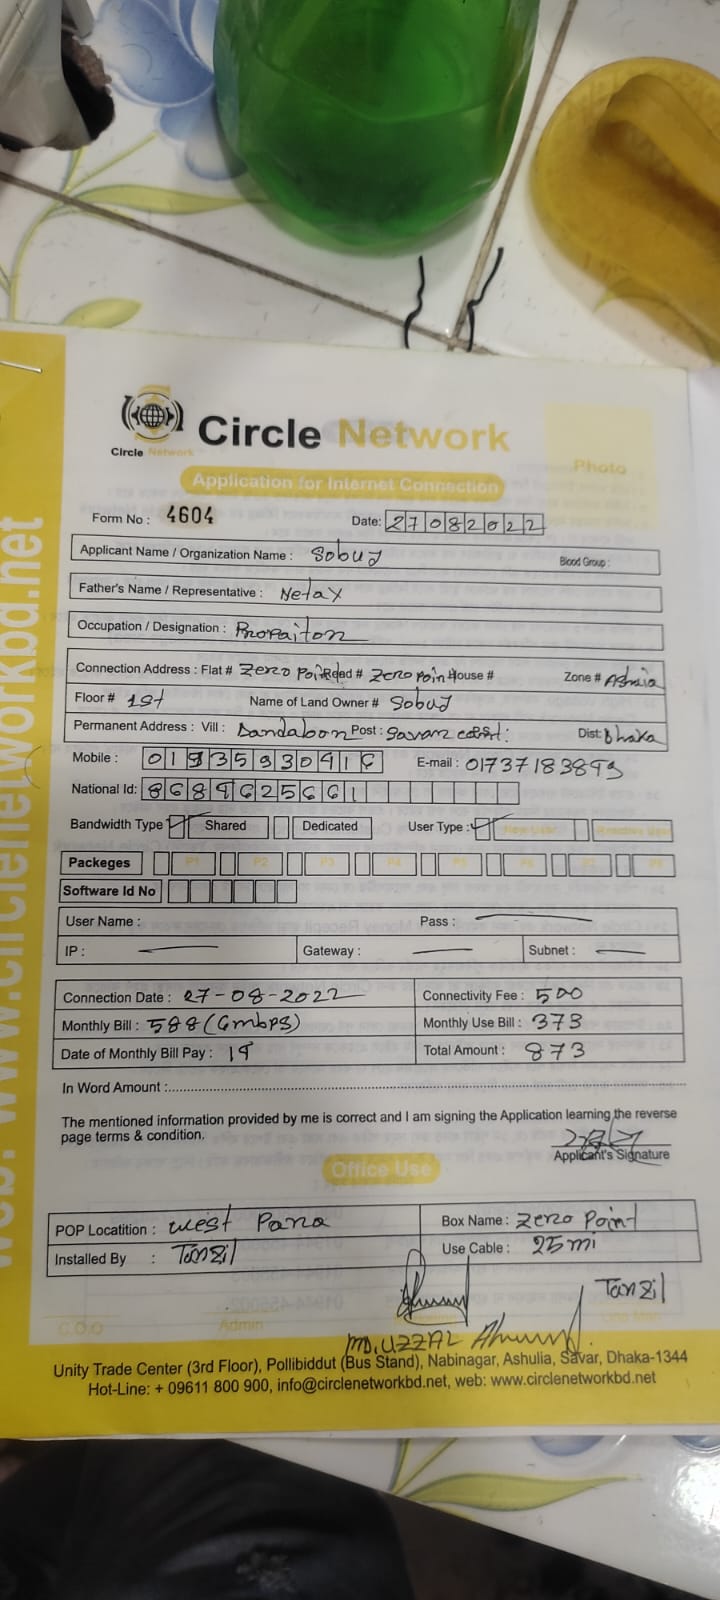 Circle Network
Circle Network
Application for Internet Connection
Photo
Form No : 4604 Date: 27082022
Applicant Name / Organization Name : Sobuj Blood Group :
Father's Name / Representative : Netax
Occupation / Designation : Propaiton
Connection Address : Flat # Zero Point Road # Zero Point House # Zone #
Floor # 1st Name of Land Owner # Sobuj
Permanent Address : Vill : Post : Savar Dist: Dhaka
Mobile : E-mail :
National Id:
Bandwidth Type Shared Dedicated User Type : New User Reactive User
Packeges P1 P2 P3 P4 P5 P6 P7 P8
Software Id No
User Name : Pass :
IP : Gateway : Subnet :
Connection Date : 27-08-2022 Connectivity Fee : 500
Monthly Bill : 588 (6mbps) Monthly Use Bill : 373
Date of Monthly Bill Pay : Total Amount : 873
In Word Amount :
The mentioned information provided by me is correct and I am signing the Application learning the reverse
page terms & condition.
Applicant's Signature
Office Use
POP Locatition : West Para Box Name : Zero Point
Installed By : Tanzil Use Cable : 25 mi
Tanzil
C.O.O Admin
MD. UZZAL
Unity Trade Center (3rd Floor), Pollibiddut (Bus Stand), Nabinagar, Ashulia, Savar, Dhaka-1344
Hot-Line: + 09611 800 900, info@circlenetworkbd.net, web: www.circlenetworkbd.net
web: www.circlenetworkbd.net